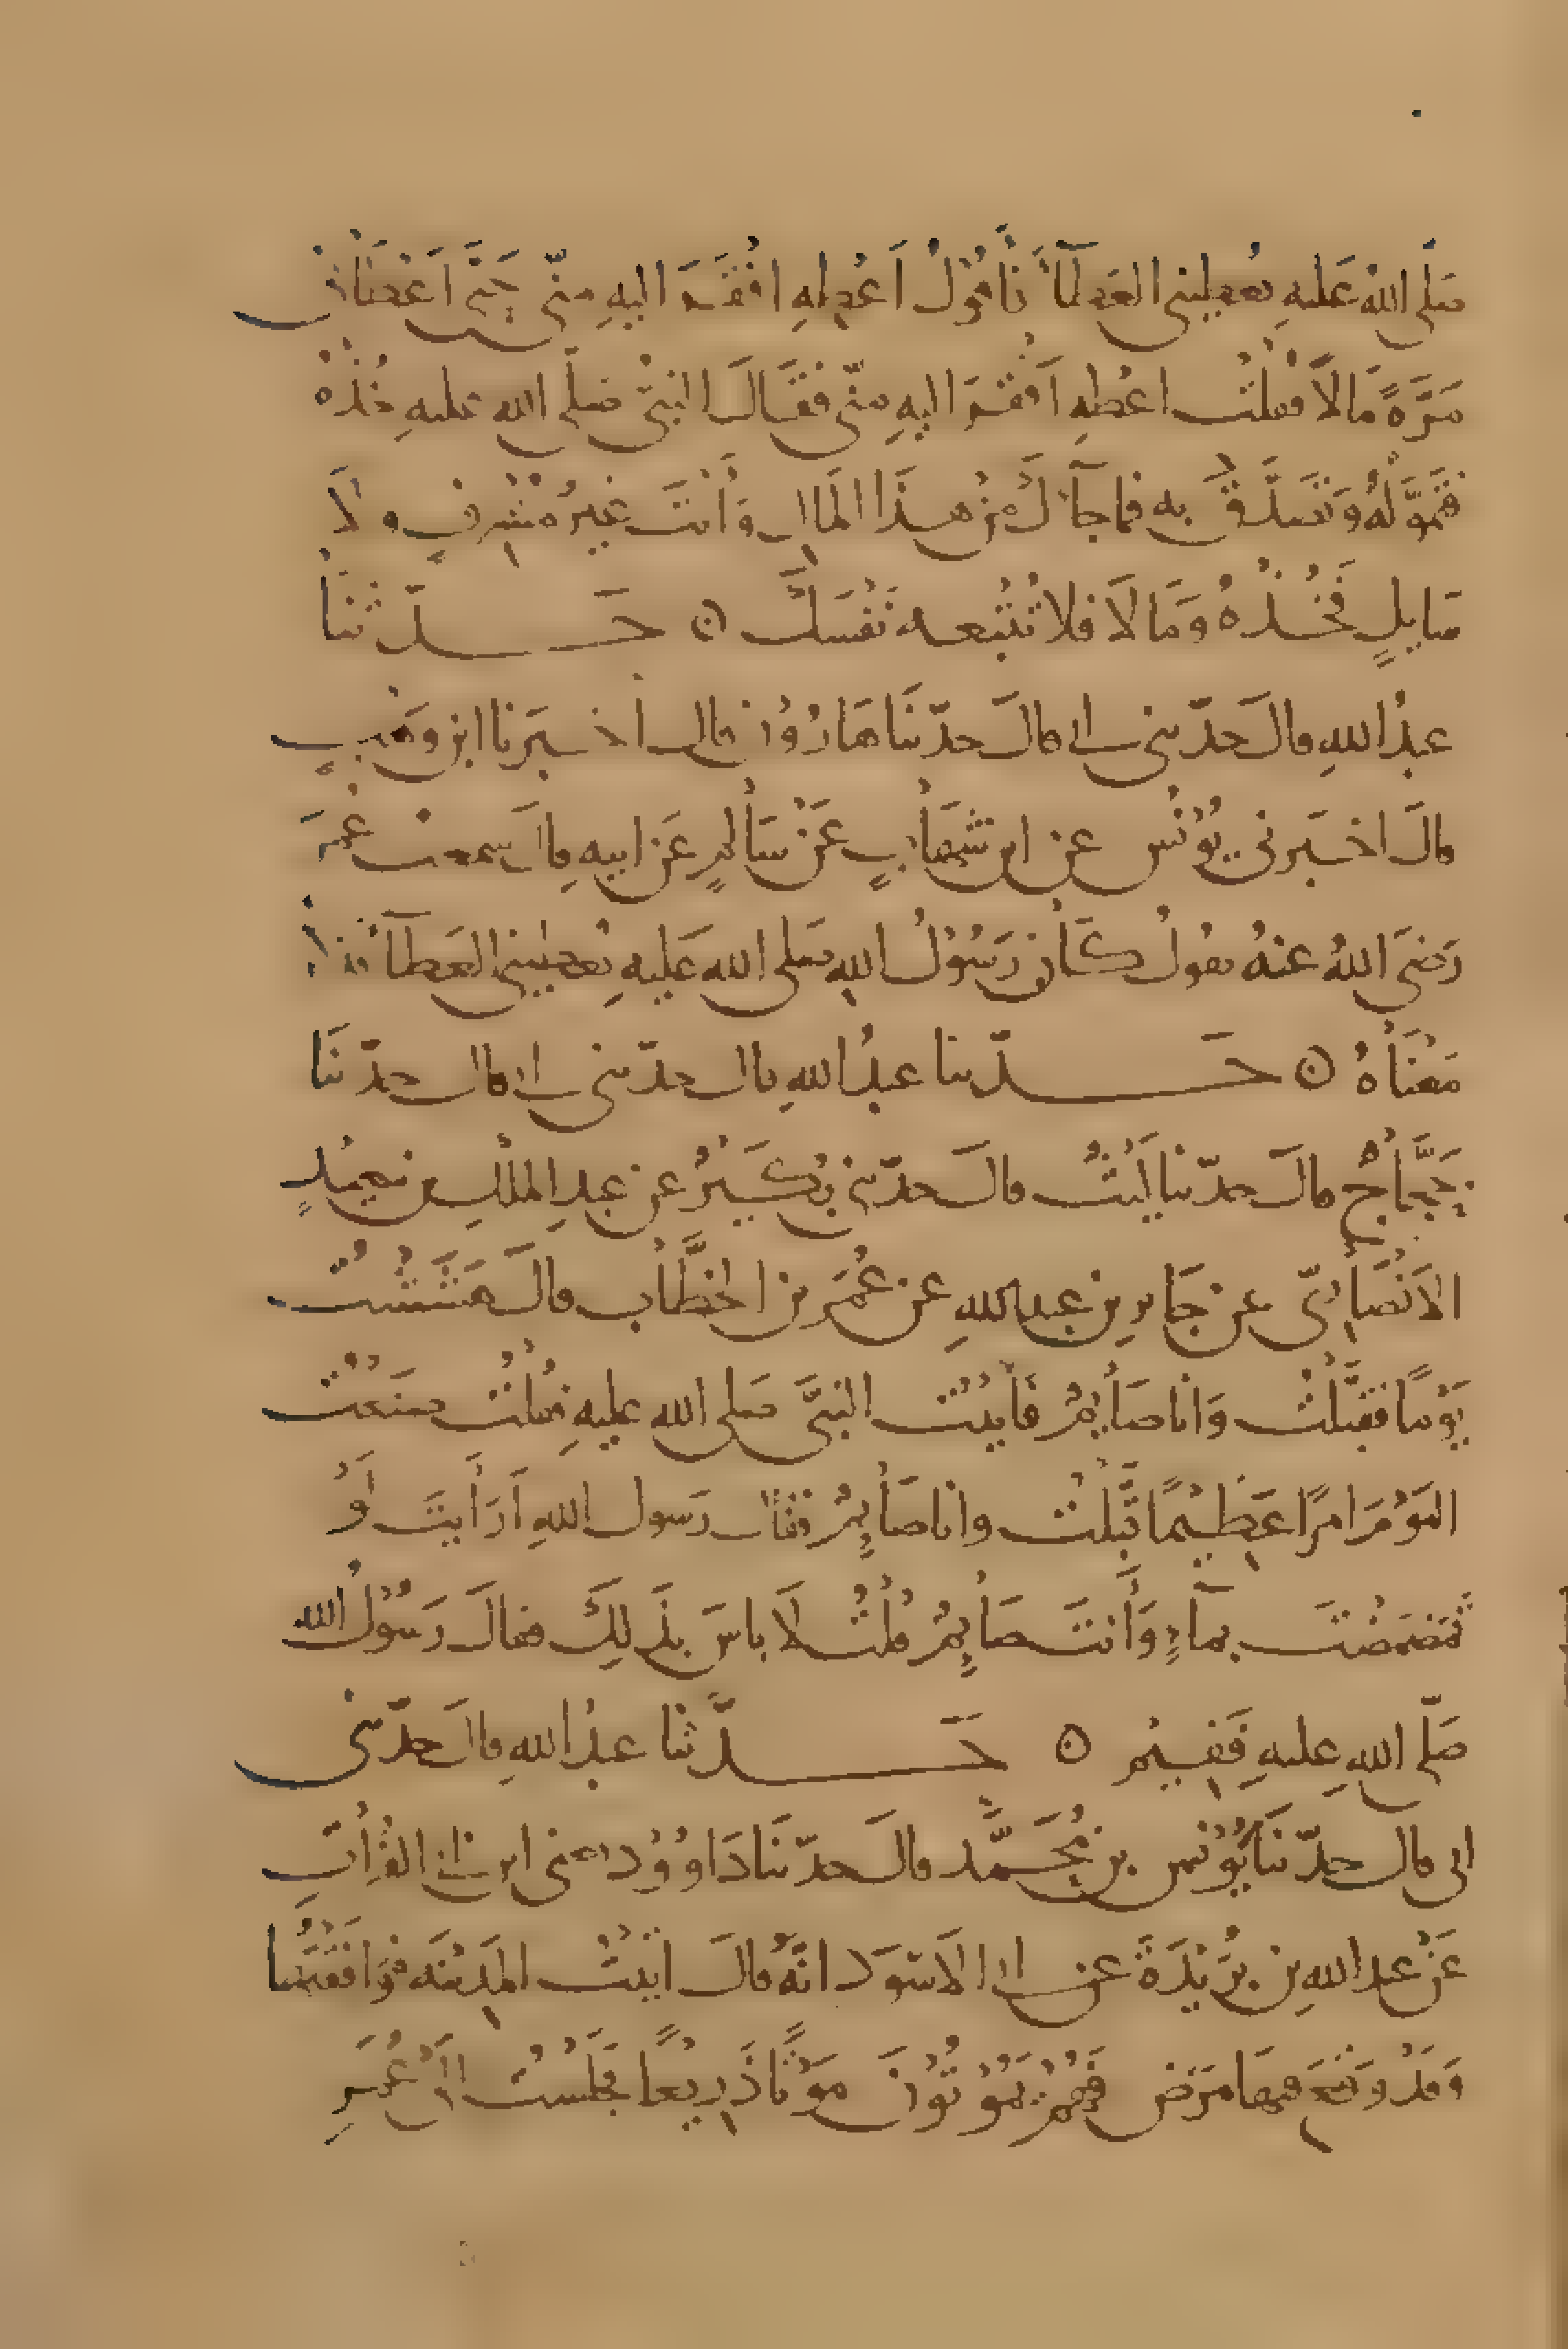 صَلَّى اللهُ عَلَيهِ يُعطيني العَطآءَ فَأَقُوْلُ اَعْطِهِ افْقَرَ اليهِ مِنّي حَتَّى اَعْطَانِي
مَرَّةً مَالاً فقُلْتُ اعْطِهِ اَفْقَرَ اليهِ منّي فَقَالَ النبيُّ صَلّى الله عليهِ خُذْهُ
فَتَمَوَّلْهُ وَتَصَدَّقْ بِه فما جآءَكَ مِنْ هَذَا المَالِ وَأَنْتَ غيرُ مُشْرِفٍ ولاَ
سَايِلٍ فَخُذْهُ وَمَا لاَ فلا تُتْبِعه نَفْسَكَ ۞ حَــدّثنَا
عبدُ اللهِ قالَ حدّثني ابى قالَ حدّثنَا هَارُوْن قال اخبَرنا ابن وَهْبٍ
قالَ اخبَرني يُوْنُس عن ابن شِهَابٍ عَنْ سَالمٍ عَن ابيهِ قالَ سمعتْ عُمَرَ
رَضيَ اللهُ عنهُ يقولُ كَانَ رَسُوْلُ اللهِ صَلى الله عَليهِ يُعطيني العَطآءَ فذكر
مَعْنَاهُ ۞ حَــدّثنا عبدُ اللهِ قال حدّثني ابى قال حدّثنَا
حَجَّاجٌ قالَ حدّثنا لَيْثٌ قالَ حدّثني بُكَيْرٌ عن عبدِ الملكِ بن سَعِيْدٍ
الاَنْصَارِيّ عن جَابرِ بن عبدِ اللهِ عن عُمَر بن الخطَّاب قالَ هَشَشْتُ
يَوْمًا فقبَّلْتُ وَانا صَايِمٌ فَأتيْتُ النبيَّ صَلى الله عليهِ فقُلْتُ صنَعْتُ
اليَوْمَ امرًا عَظِيْمًا قَبَّلْتُ وانا صَايِمٌ فقالَ رَسول اللهِ اَرَأيتَ لَوْ
تمَضمَضْتَ بمآءٍ وَأَنتَ صَايِمٌ قلْتُ لاَ باسَ بذَلِكَ فقالَ رَسُوْلُ الله
صَلّى اللهِ عليهِ فَفِيْمَ ۞ حَــدَّثنا عبدُ اللهِ قالَ حدّثني
ابى قال حدّثنَا يُوْنُس بن مُحَمَّد قالَ حدّثنَا دَاوُوْد يعني ابن ابى الفُرَاتِ
عَنْ عبد اللهِ بن بُرَيْدَةَ عن ابى الاَسْوَد انَّهُ قالَ اتَيْتُ المَدِيْنَه فوَافَقْتُهَا
وَقَدْ وَقَعَ فيهَا مَرَض فَهُمْ يَمُوْتُوْنَ مَوْتًا ذَرِيْعًا فجَلَسْتُ الَى عُمَرِ